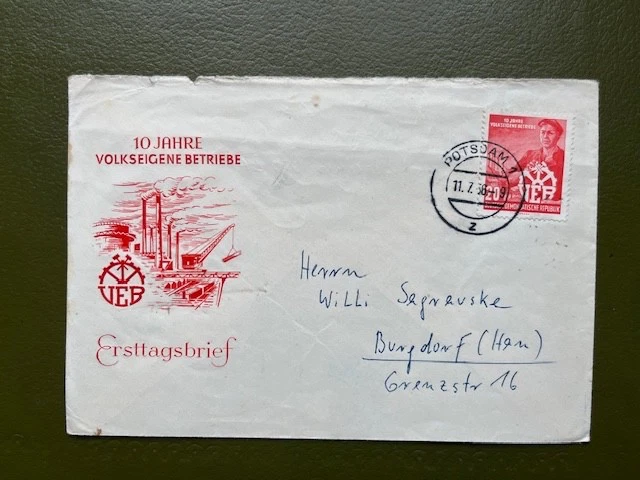 10 JAHRE
VOLKSEIGENE BETRIEBE
VEB
Ersttagsbrief
10 JAHRE
VOLKSEIGENE BETRIEBE
VEB
20
DEMOKRATISCHE REPUBLIK
POTSDAM 1
11. 7. 56-19
z
Herrn
Willi
Burgdorf (Han)
Grenzstr 16